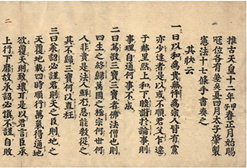 推古天皇十二年甲子春正月始賜
冠位各有差矣是四月太子筆製
憲法十七條手書奏之
其狀云
一曰以和為貴無忤為宗人皆有黨
亦少達者是以或不順君父乍違
于隣里然上和下睦諧於論事則
事理自通何事不成
二曰篤敬三寶三寶者佛法僧也則
四生之終歸萬國之極宗何世何
人非貴是法人鮮尤惡能教從之
其不歸三寶何以直枉
三曰承詔必謹君則天之臣則地之
天覆地載四時順行萬氣得通地
欲覆天則致壞耳是以君言臣承
上行下靡故承詔必慎不謹自敗